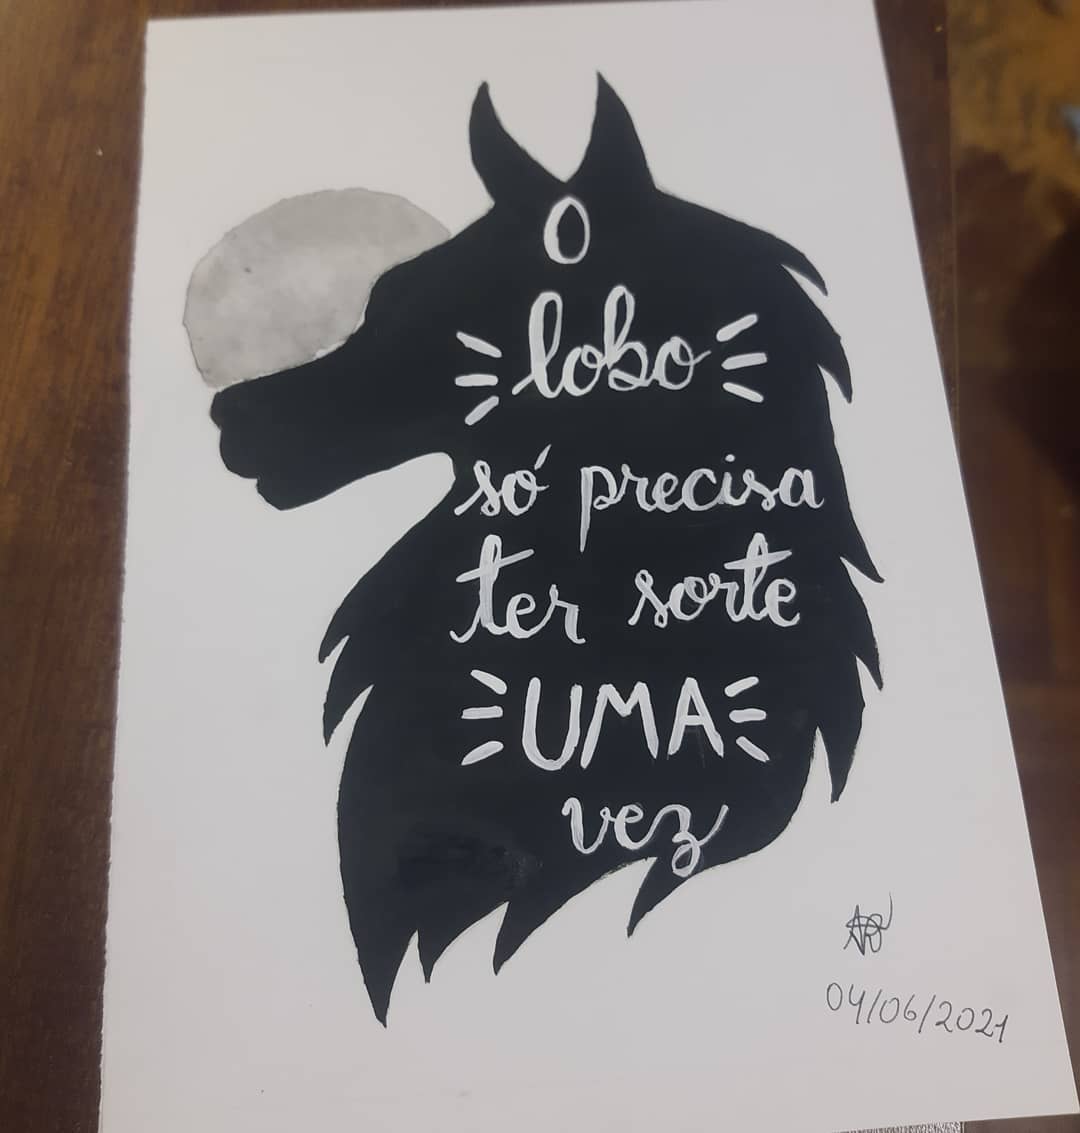 O
lobo
só precisa
ter sorte
UMA
vez
04/06/2021